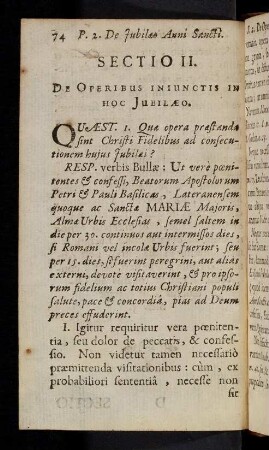 74 P. 2. De Jubilæo Anni Sancti.
SECTIO II.
DE OPERIBUS INIUNCTIS IN
HOC JUBILÆO.
QUÆST. 1. Quæ opera præstanda
sint Christi Fidelibus ad consecu-
tionem hujus Jubilæi?
RESP. verbis Bullæ: Ut verè pœni-
tentes & confessi, Beatorum Apostolorum
Petri & Pauli Basilicas, Lateranensem
quoque ac Sanctæ MARIÆ Majoris,
Almæ Urbis Ecclesias, semel saltem in
die per 30. continuos aut intermissos dies,
si Romani vel incolæ Urbis fuerint; seu
per 15. dies, si fuerint peregrini, aut alias
externi, devotè visitaverint, & pro ipso-
rum fidelium ac totius Christiani populi
salute, pace & concordiâ, pias ad Deum
preces effuderint.
I. Igitur requiritur vera pœniten-
tia, seu dolor de peccatis, & confes-
sio. Non videtur tamen necessariò
præmittenda visitationibus: cùm, ex
probabiliori sententiâ, necesse non
sit